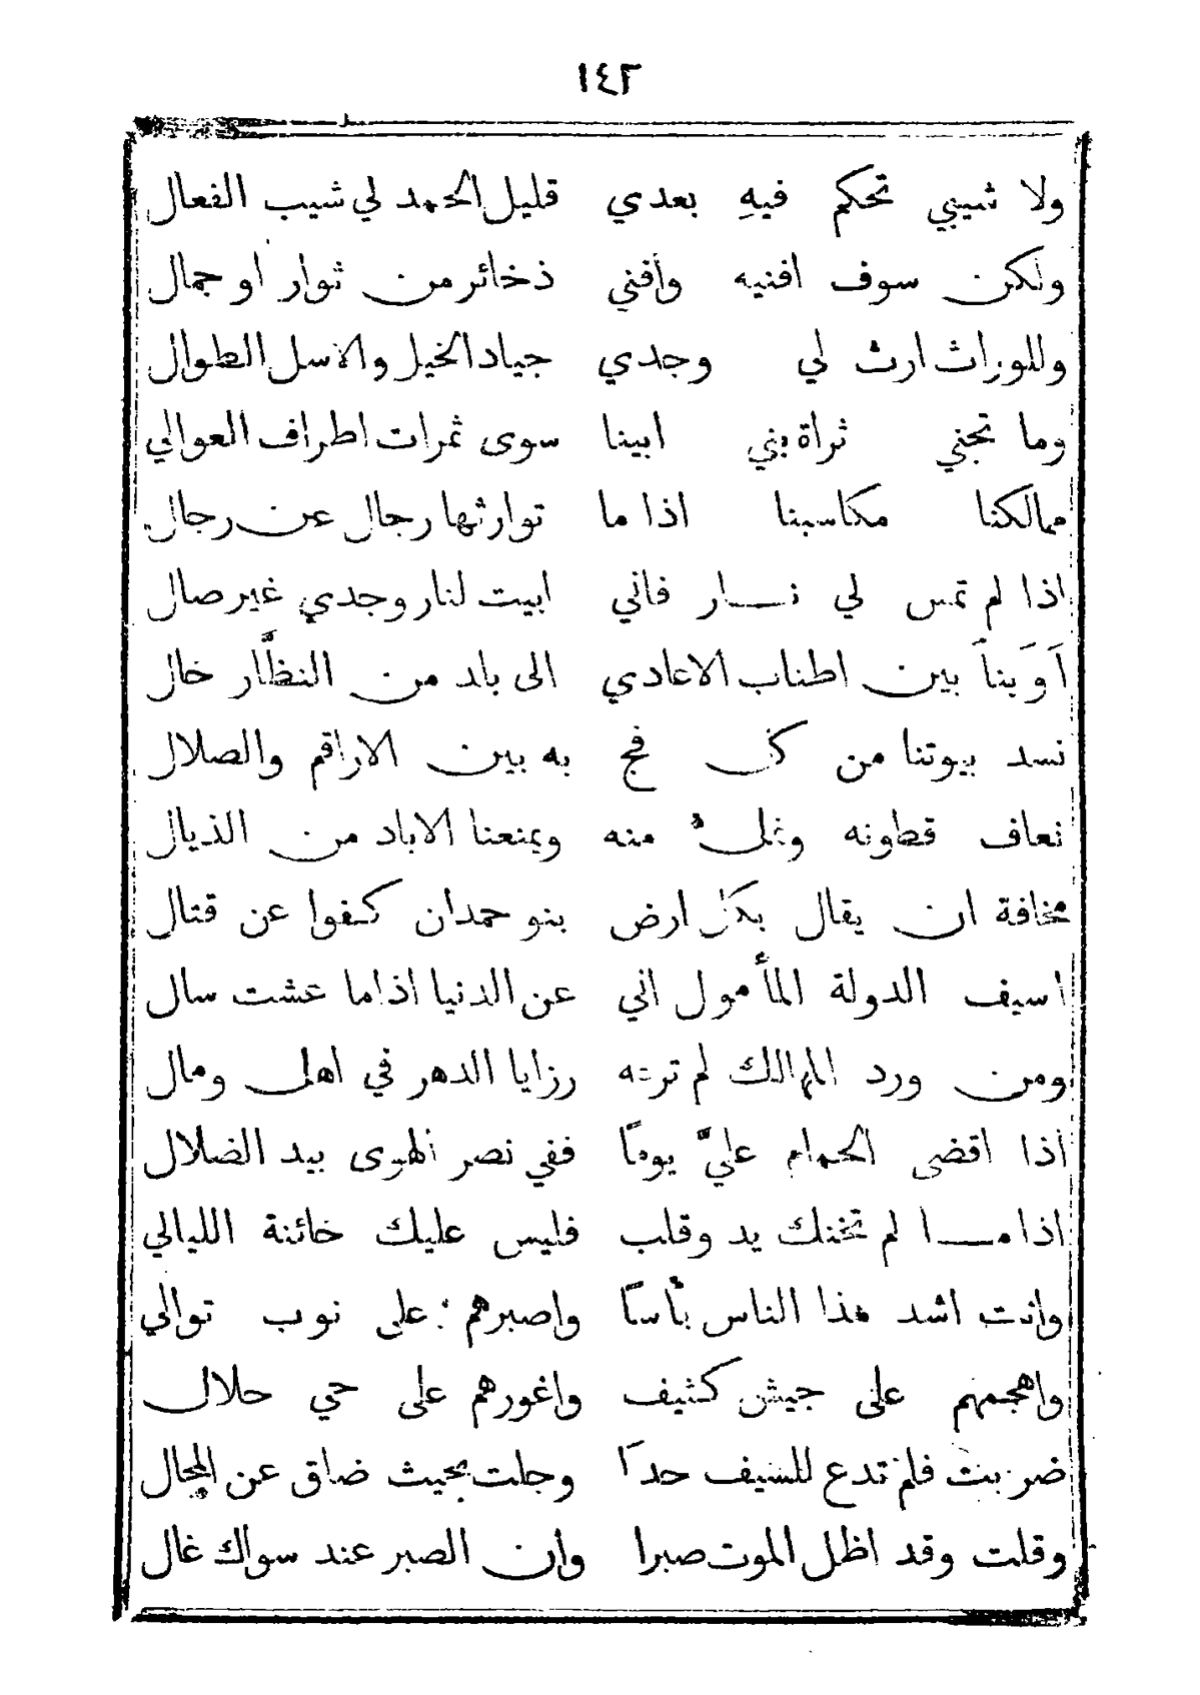 ١٤٢
ولا شيبي تحكم فيهِ بعدي قليل الحمد لي شيب الفعال
ولكن سوف افنيه وأفني ذخائر من ثوار او جمال
وللوراث ارث لي وجدي جياد الخيل والاسل الطوال
وما تجني ثراة بني ابينا سوى ثمرات اطراف العوالي
ممالكنا مكاسبنا اذا ما توارثها رجال عن رجال
اذا لم تمس لي نــار فاني ابيت لنار وجدي غير صال
اَوَيناَ بين اطناب الاعادي الى بلد من النظَّار خال
نسد بيوتنا من كل فج به بين الاراقم والصلال
نعاف قطونه ونمل منه ويمنعنا الاباد من الذيال
مخافة ان يقال بكل ارض بنو حمدان كفوا عن قتال
اسيف الدولة المأمول اني عن الدنيا اذا ما عشت سال
ومن ورد المهالك لم ترعه رزايا الدهر في اهل ومال
اذا اقضى الحمام عليَّ يوماً ففي نصر الهوى بيد الضلال
اذا مــا لم تخنك يد وقلب فليس عليك خائنة الليالي
وانت اشد هذا الناس بأساً واصبرهم على نوب توالي
واهجمهم على جيش كثيف واغورهم على حي حلال
ضربت فلم تدع للسيف حداً وجلت بحيث ضاق عن المجال
وقلت وقد اظل الموت صبرا وان الصبر عند سواك غال